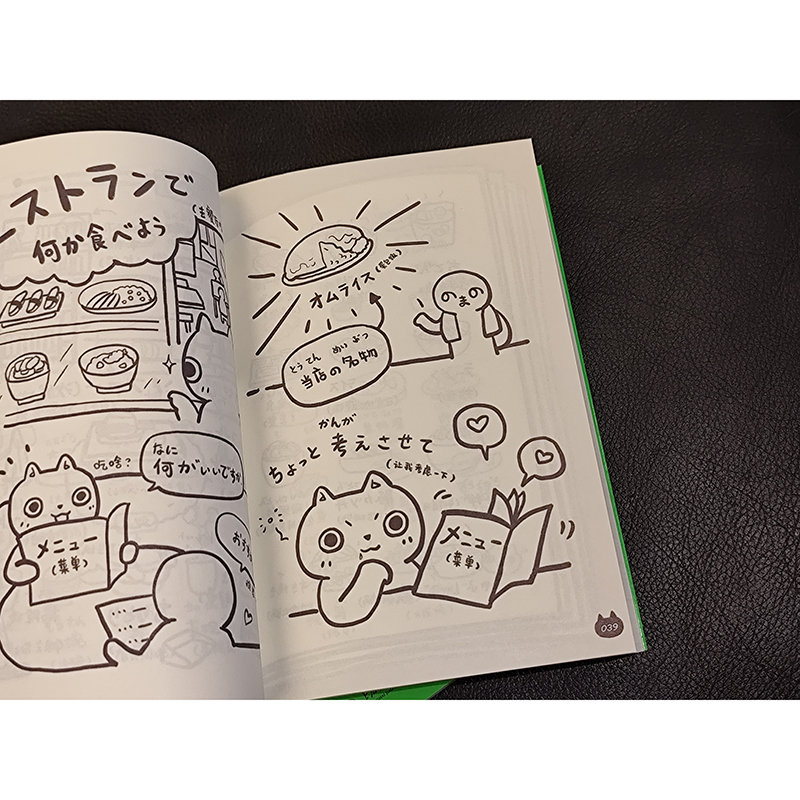 ストランで
何か食べよう
吃啥？
なに
何がいいですか
メニュー
(菜单)
オムライス(蛋包饭)
のまの
とうてん めいぶつ
当店の名物
かんが
ちょっと 考えさせて
(让我考虑一下)
メニュー
(菜单)
039